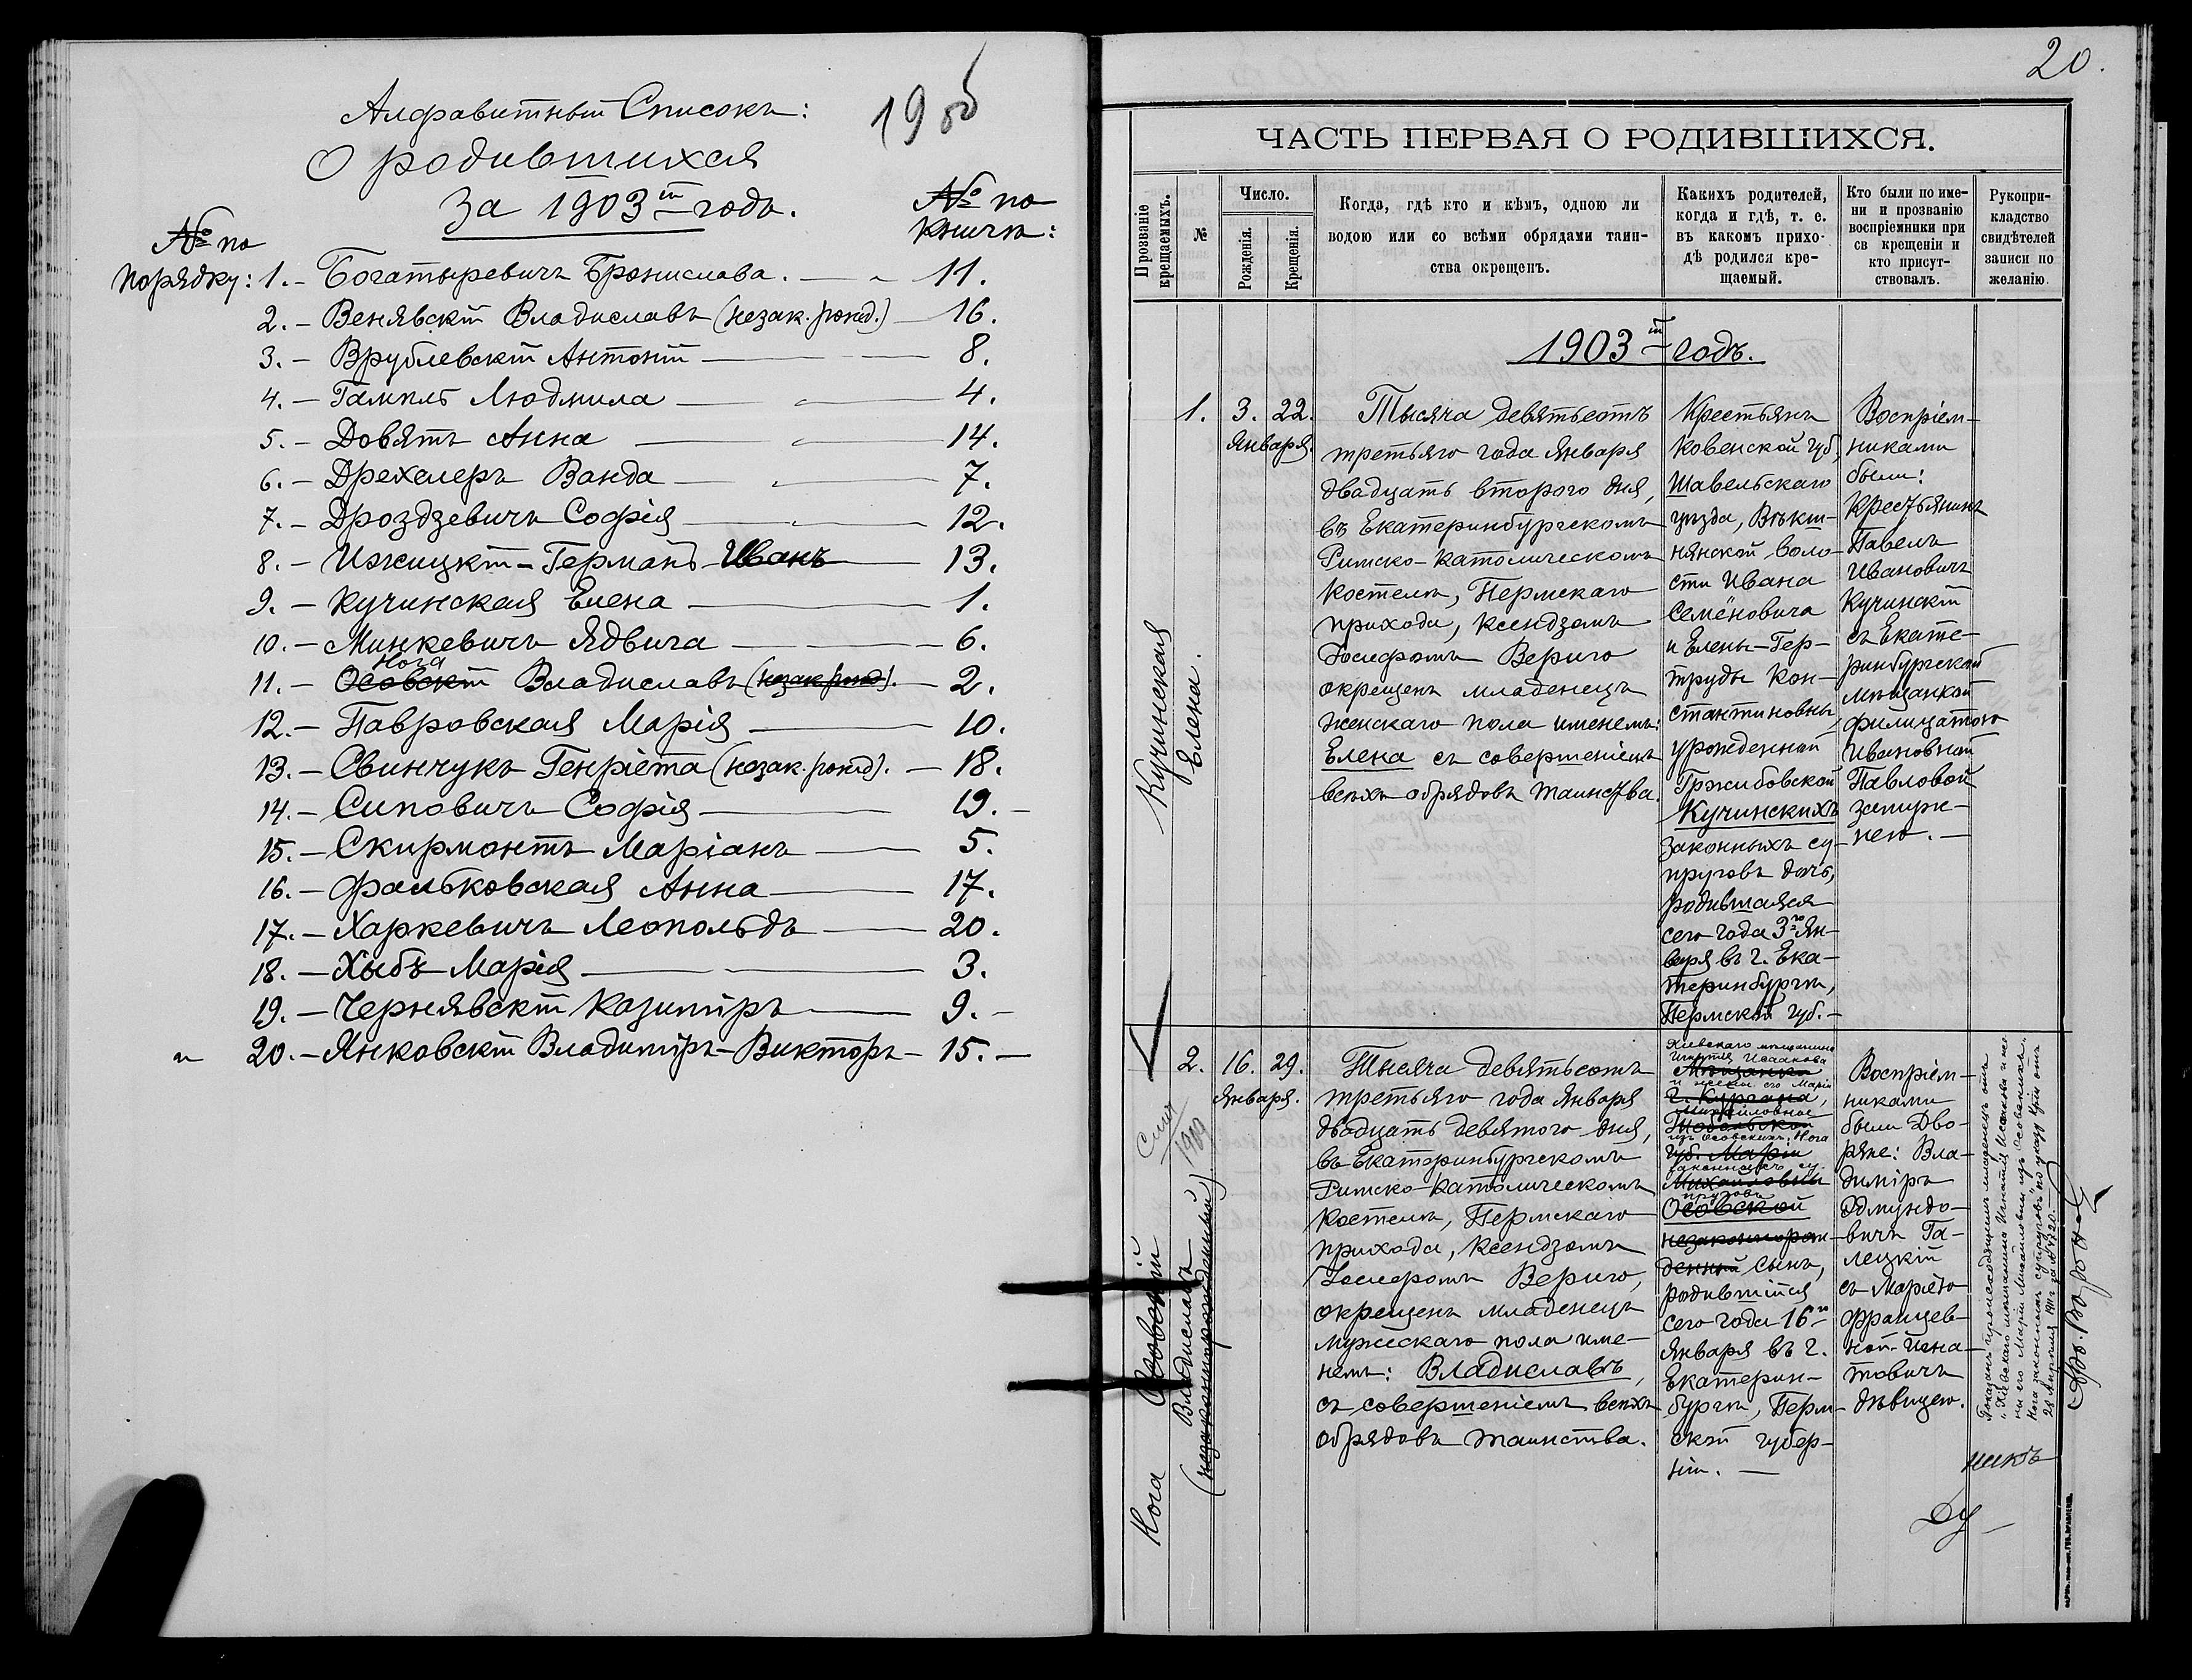 Алфавитный Списокъ:
19 об
О родившихся
За 1903ій годъ.
№ по порядку:
№ по книгѣ:
1. – Богатыревичъ Бронислава. — 11.
2. – Венявскій Владиславъ (незак. рожд.) — 16.
3. – Врублевскій Антоній — 8.
4. – Гампль Людмила — 4.
5. – Довятъ Анна — 14.
6. – Дрехслеръ Ванда — 7.
7. – Дроздзевичъ Софія — 12.
8. – Ижицкій – Германъ Иванъ — 13.
9. – Кучинская Елена — 1.
10. – Минкевичъ Ядвига — 6.
Нога
11. – Осовскій Владиславъ (незак. рожд.) — 2.
12. – Павровская Марія — 10.
13. – Свинчукъ Генріета (незак. рожд.) — 18.
14. – Сиповичъ Софія — 19. –
15. – Скирмонтъ Маріанъ — 5.
16. – Фальковская Анна — 17.
17. – Харкевичъ Леопольдъ — 20.
18. – Хыбъ Марія — 3.
19. – Чернявскій Казиміръ — 9. –
20. – Янковскій Владиміръ – Викторъ – 15. —
20.
ЧАСТЬ ПЕРВАЯ О РОДИВШИХСЯ.
Прозваніе крещаемыхъ.
№
Число.
Рожденія.
Крещенія.
Когда, гдѣ кто и кѣмъ, одною ли
водою или со всѣми обрядами таин-
ства окрещенъ.
Какихъ родителей,
когда и гдѣ, т. е.
въ какомъ прихо-
дѣ родился кре-
щаемый.
Кто были по име-
ни и прозванію
воспріемники при
св крещеніи и
кто присут-
ствовалъ.
Рукопри-
кладство
свидѣтелей
записи по
желанію.
1903ій годъ.
Кучинская
Елена.
1.
3. 22.
Января.
Тысяча девятьсотъ
третьяго года Января
двадцать второго дня,
въ Екатеринбургскомъ
Римско-Католическомъ
Костелѣ, Пермскаго
прихода, Ксендзомъ
Іосифомъ Вериго
окрещенъ младенецъ
женскаго пола именемъ:
Елена съ совершеніемъ
всѣхъ обрядовъ таинства.
Крестьянъ
Ковенской губ,
Шавельскаго
уѣзда, Вѣкш-
нянской воло-
сти Ивана
Семёновича
и Елены-Гер-
труды Кон-
стантиновны,
урожденной
Гржибовской
Кучинскихъ
законныхъ су-
пруговъ дочь,
родившаяся
сего года 3го Ян-
варя въ г. Ека-
теринбургѣ,
Пермской губ. –
Воспріем-
никами
были:
Крестьянинъ
Павелъ
Ивановичъ
Кучинскій
съ Екате-
ринбургской
мѣщанкой
Филицатою
Ивановной
Павловой
замуж-
нею. —
Нога Осовскій
Владиславъ
(незаконнорожденный)
1909
2.
16. 29.
Января.
Тысяча девятьсотъ
третьяго года Января
двадцать девятого дня,
въ Екатеринбургскомъ
Римско-Католическомъ
Костелѣ, Пермскаго
прихода, Ксендзомъ
Іосифомъ Вериго,
окрещенъ младенецъ
мужескаго пола име-
немъ: Владиславъ,
съ совершеніемъ всѣхъ
обрядовъ таинства.
Кіевскаго мѣщанина
Игнатія Исаакова
Мѣщанки
и жены его Маріи
г. Кургана,
Михайловной
Тобольской
изъ Осовскихъ: Нога
губ. Маріи
законныхъ су-
Михайловны
пруговъ
Осовской
незаконнорож-
денный сынъ,
родившійся
сего года 16го
Января въ г.
Екатерин-
бургѣ, Перм-
ской губер-
ніи. —
Воспріем-
никами
были Дво-
ряне: Вла-
диміръ
Эдмундо-
вичъ Га-
лецкій
съ Маріею
Францев-
ной Игна-
товичъ
дѣвицею.
Показанъ происходящимъ младенецъ отъ
„Кіевскаго мѣщанина Игнатія Исаакова и же-
ны его Маріи Михайловны изъ Осовскихъ:
Нога законныхъ супруговъ" по указу Крім отъ
28 Апрѣля 1911 г. за № 4320.
Ду –